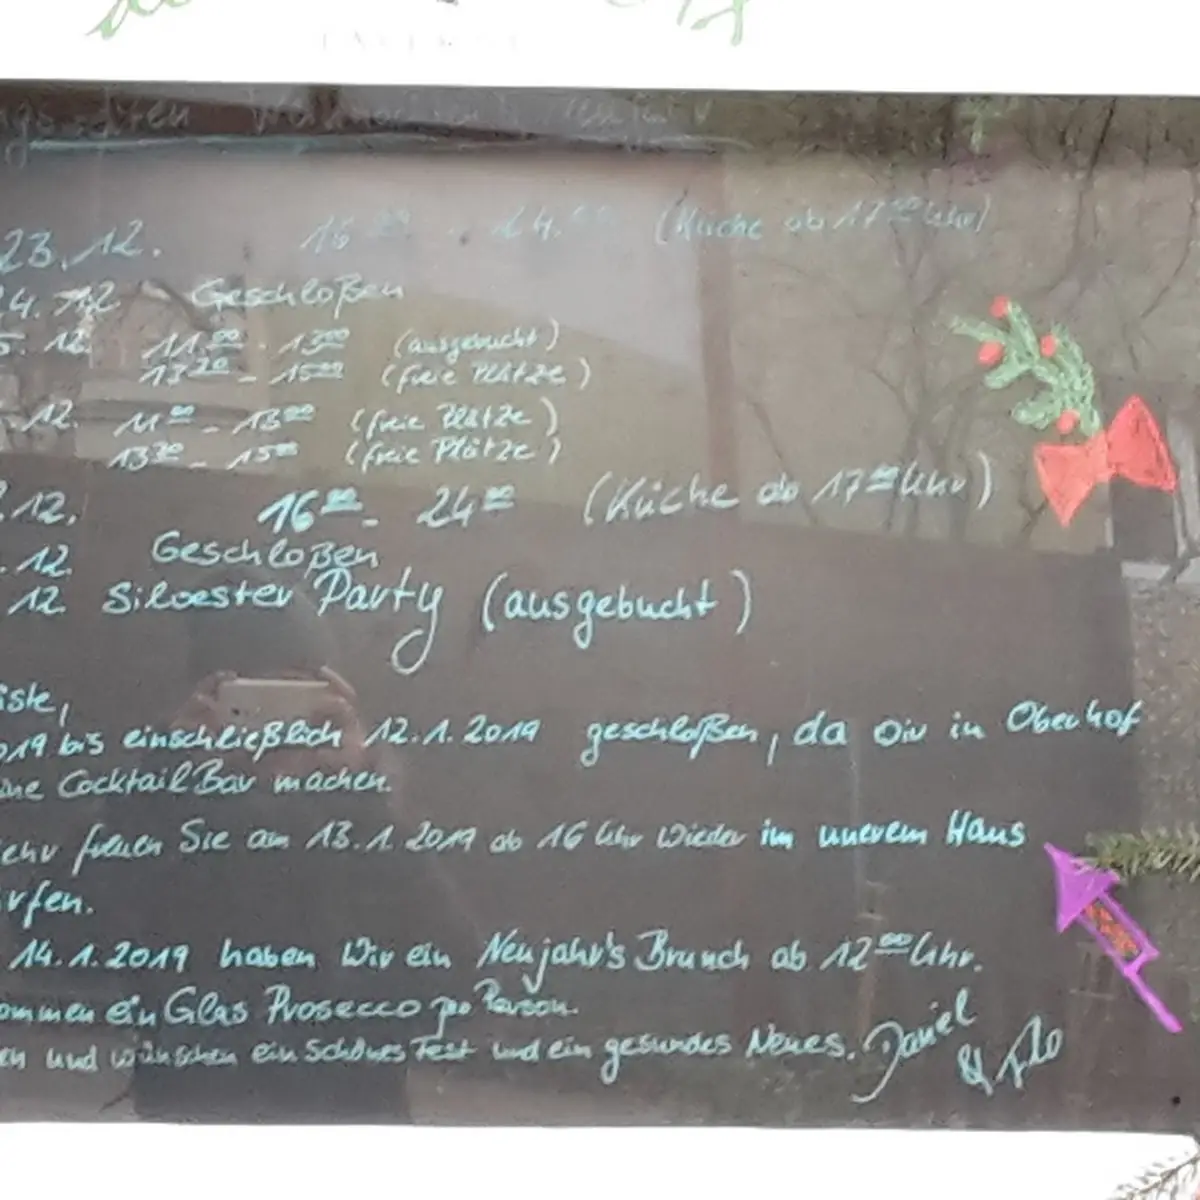 23.12. 16 00 - 24.00 (Küche ab 17 00 Uhr)
24.12 Geschloßen
5. 12. 11.00 - 13 00 (ausgebucht)
13 20 - 15 00 (freie Plätze)
.12. 11 00 - 13 00 (freie Plätze)
13 20 - 15 00 (freie Plätze)
.12. 16 00 - 24 00 (Küche ab 17 00 Uhr)
.12. Geschloßen
12. Silvester Party (ausgebucht)
iste,
019 bis einschließlich 12.1.2019 geschloßen, da Wir in Oberhof
ine Cocktail Bar machen.
ehr freuen Sie am 13.1.2019 ab 16 Uhr Wieder im unerem Haus
rfen.
14.1.2019 haben Wir ein Neujahr's Brunch ab 12 00 Uhr.
ommen ein Glas Prosecco pro Person.
en und wünschen ein Schönes Fest und ein gesundes Neues. Daniel